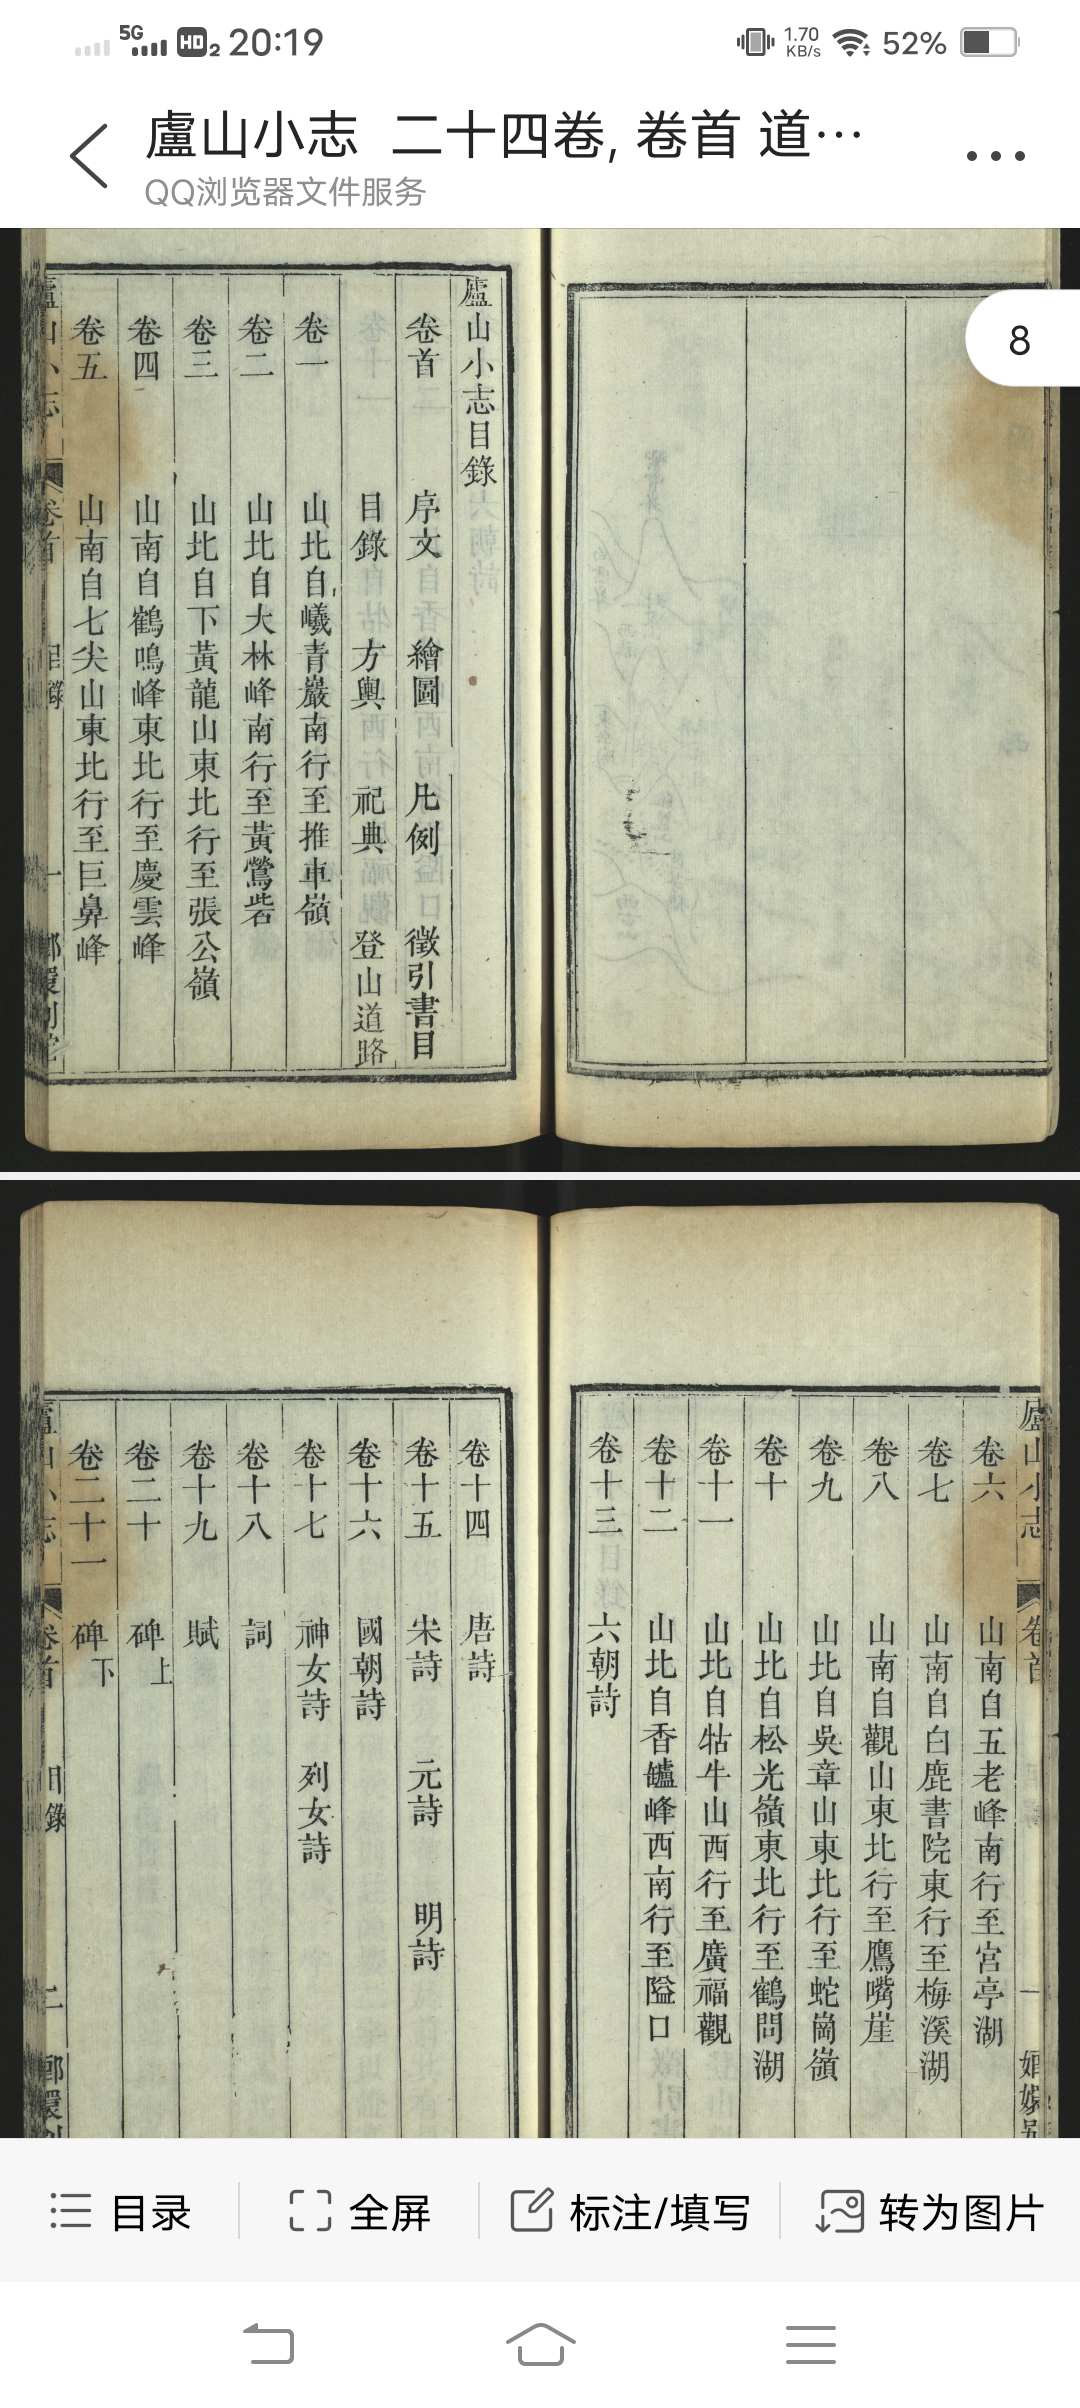 5G HD 2 20:19 1.70 KB/s 52%
廬山小志 二十四卷, 卷首 道…
QQ浏览器文件服务
8
廬山小志目錄
卷首 序文 繪圖 凡例 徵引書目
目錄 方輿 祀典 登山道路
卷一 山北自曦青巖南行至推車嶺
卷二 山北自大林峰南行至黃鶯砦
卷三 山北自下黃龍山東北行至張公嶺
卷四 山南自鶴鳴峰東北行至慶雲峰
卷五 山南自七尖山東北行至巨鼻峰
廬山小志 卷首 目錄 一
廬山小志 卷首 一
卷六 山南自五老峰南行至宮亭湖
卷七 山南自白鹿書院東行至梅溪湖
卷八 山南自觀山東北行至鷹嘴崖
卷九 山北自吳章山東北行至蛇崗嶺
卷十 山北自松光嶺東北行至鶴問湖
卷十一 山北自牯牛山西行至廣福觀
卷十二 山北自香罏峰西南行至隘口
卷十三 六朝詩
卷十四 唐詩
卷十五 宋詩 元詩 明詩
卷十六 國朝詩
卷十七 神女詩 列女詩
卷十八 詞
卷十九 賦
卷二十 碑上
卷二十一 碑下
廬山小志 卷首 目錄 二
目录 全屏 标注/填写 转为图片